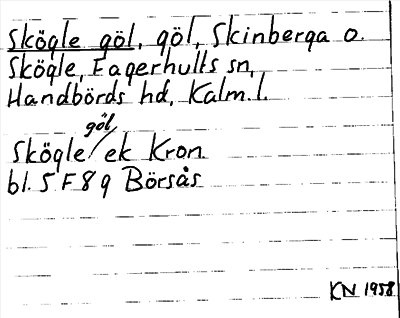 Skögle göl, göl, Skinberga o.
Skögle, Fagerhults sn,
Handbörds hd, Kalm. l.
göl,
Skögle/ ek Kron.
bl. 5 F 8 g Börsås
KN 1958